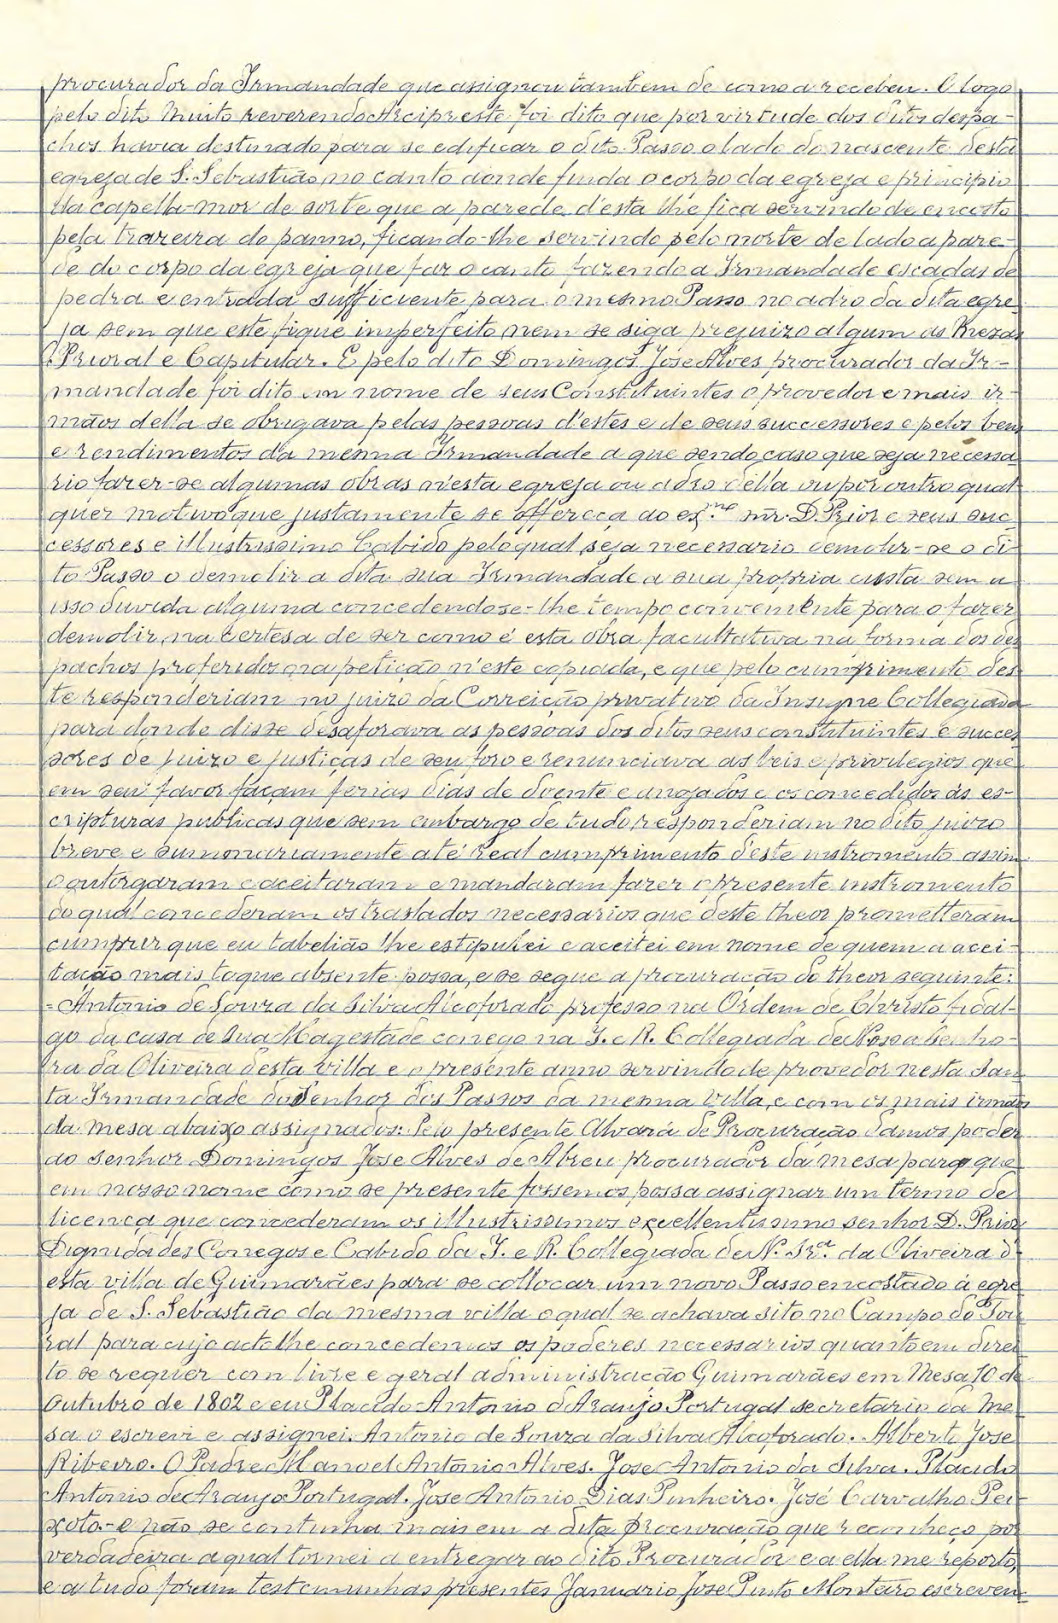 procurador da Irmandade que assignou tambem de como a recebeu. E logo
pelo dito Muito reverendo Arcipreste foi dito que por virtude dos ditos despa-
chos havia destinado para se edificar o dito Passo o lado do nascente desta
egreja de S. Sebastião no canto aonde finda o corpo da egreja e principio
da capella-mor de sorte que a parede d'esta lhe fica servindo de encosto
pela trazeira do panno, ficando-lhe servindo pelo norte de lado a pare-
de do corpo da egreja que faz o canto fazendo a Irmandade escadas de
pedra e entrada sufficiente para o mesmo Passo no adro da dita egre-
ja sem que este fique imperfeito nem se siga prejuizo algum ás Mezas
Prioral e Capitular. E pelo dito Domingos José Alves procurador da Ir-
mandade foi dito em nome de seus Constituintes o provedor e mais ir-
mãos della se obrigava pelas pessoas d'estes e de seus successores e pelos bens
e rendimentos da mesma Irmandade a que sendo caso que seja necessa-
rio fazer-se algumas obras n'esta egreja ou adro d'ella ou por outro qual
quer motivo que justamente se offereça ao ex.mo snr. D. Prior e seus suc-
cessores e illustrissimo Cabido pelo qual seja necessario demolir-se o di-
to Passo o demolir a dita sua Irmandade a sua propria custa sem a
isso duvida alguma concedendose-lhe tempo conveniente para o fazer
demolir, na certesa de ser como é esta obra facultativa na forma dos des
pachos proferidos na petição n'este copiada, e que pelo cumprimento des-
te responderiam no juizo da Correição privativo da Insigne Collegiada
para donde disse desaforava as pessoas dos ditos seus constituintes e succes
sores de juizo e justiças de seu foro e renunciava as leis e privilegios que
em seu favor façam ferias dias de doente e anojados e os concedidos ás es-
cripturas publicas que sem embargo de tudo responderiam no dito juizo
breve e summariamente até real cumprimento deste instromento assim
o outorgaram e aceitaram e mandaram fazer o presente instromento
do qual concederam os traslados necessarios que deste theor prometteram
cumprir que eu tabelião lhe estipulei e aceitei em nome de quem a acei-
tação mais toque absente possa, e se segue a procuração do theor seguinte:
= Antonio de Souza da Silva Alcoforado professo na Ordem de Christo fidal-
go da casa de Sua Magestade conego na I. e R. Collegiada de Nossa Senho-
ra da Oliveira desta villa e o presente anno servindo de provedor nesta San
ta Irmandade do Senhor dos Passos da mesma Villa, e com os mais irmãos
da mesa abaixo assignados: Pelo presente Alvará de Procuração damos poder
ao senhor Domingos Jose Alves de Abreu procurador da mesa para que
em nosso nome como se presente fossemos possa assignar um termo de
licença que concederam os illustrissimos excellentissimo senhor D. Prior
Dignidades Conegos e Cabido da I. e R. Collegiada de N. Srª. da Oliveira d'
esta villa de Guimarães para se collocar um novo Passo encostado á egre
ja de S. Sebastião da mesma villa o qual se achava sito no Campo do Tou
ral para cujo acto lhe concedemos os poderes necessarios quanto em direi
to se requer com livre e geral administracão Guimarães em Mesa 10 de
outubro de 1802 e eu Placido Antonio d'Araujo Portugal secretario da Me
sa o escrevi e assignei. Antonio de Souza da Silva Alcoforado. Alberto Jose
Ribeiro. O Padre Manoel Antonio Alves. Jose Antonio da Silva. Placido
Antonio de Araujo Portugal. Jose Antonio Dias Pinheiro. José Carvalho Pei-
xoto. e não se continha mais em a dita procuração que reconheço por
verdadeira a qual tornei a entregar ao dito Procurador e a ella me reporto,
e a tudo foram testemunhas presentes Januario Jose Pinto Monteiro escreven-